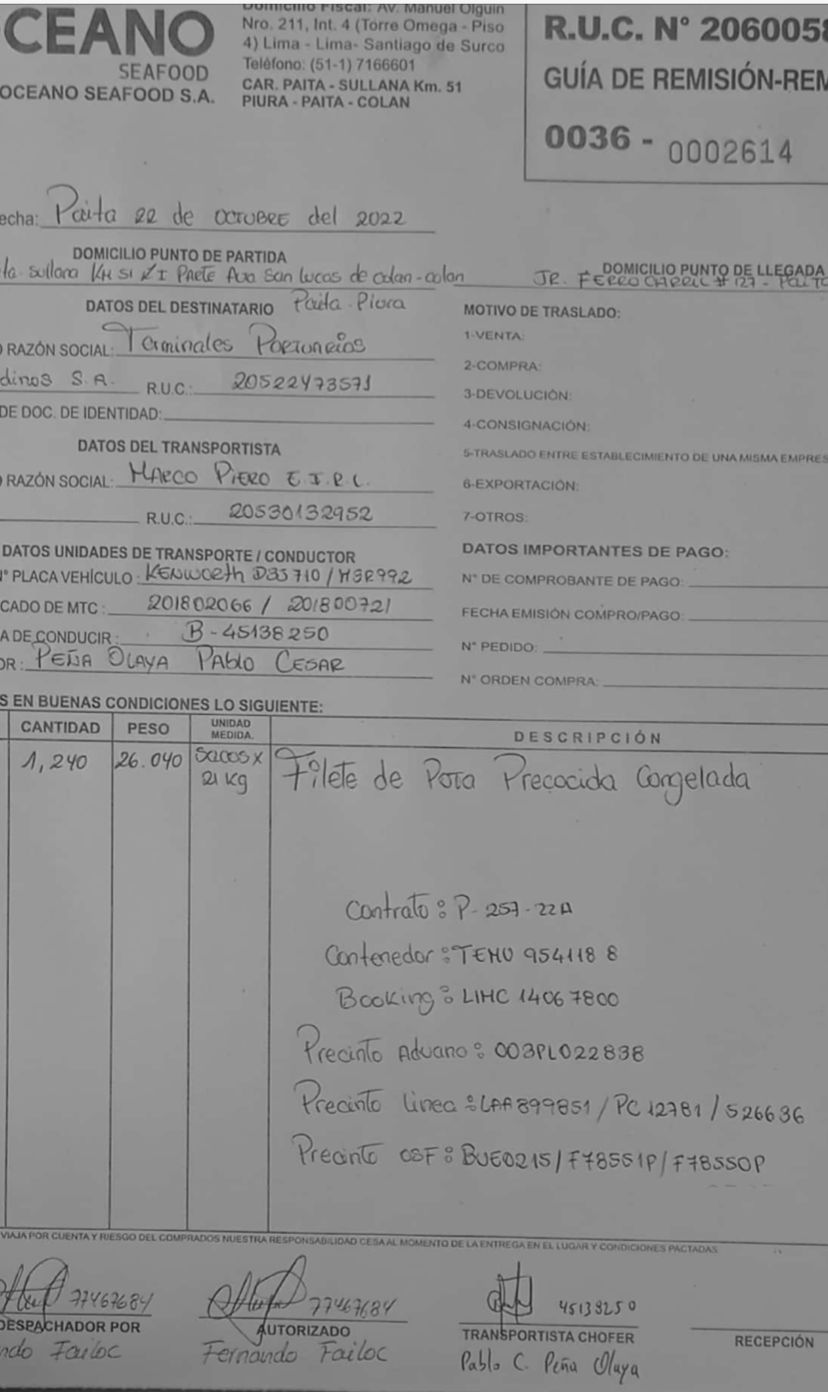 OCEANO
SEAFOOD
OCEANO SEAFOOD S.A.
Domicilio Fiscal: AV. Manuel Olguin
Nro. 211, Int. 4 (Torre Omega - Piso
4) Lima - Lima- Santiago de Surco
Teléfono: (51-1) 7166601
CAR. PAITA - SULLANA Km. 51
PIURA - PAITA - COLAN
R.U.C. N° 2060058
GUÍA DE REMISIÓN-REM
0036 - 0002614
echa: Paita 22 de OCTUBRE del 2022
DOMICILIO PUNTO DE PARTIDA
sullana KM 51 Parte Ava San Lucas de colan - colan
Paita - Piura
DOMICILIO PUNTO DE LLEGADA
JR. FERROCARRIL # 127 - PAITA
DATOS DEL DESTINATARIO
O RAZÓN SOCIAL: Terminales Portuarios
dinos S.A. R.U.C.: 20522473571
DE DOC. DE IDENTIDAD:
DATOS DEL TRANSPORTISTA
O RAZÓN SOCIAL: MARCO PIERO E.I.R.L.
R.U.C.: 20530132952
DATOS UNIDADES DE TRANSPORTE / CONDUCTOR
N° PLACA VEHÍCULO : KENWORTH D3S 710 / M3R992
CADO DE MTC : 201802066 / 201800721
A DE CONDUCIR : B - 45138250
OR : PEÑA OLAYA PABLO CESAR
MOTIVO DE TRASLADO:
1-VENTA:
2-COMPRA:
3-DEVOLUCIÓN:
4-CONSIGNACIÓN:
5-TRASLADO ENTRE ESTABLECIMIENTO DE UNA MISMA EMPRES
6-EXPORTACIÓN:
7-OTROS:
DATOS IMPORTANTES DE PAGO:
N° DE COMPROBANTE DE PAGO:
FECHA EMISIÓN COMPRO/PAGO:
N° PEDIDO:
N° ORDEN COMPRA:
S EN BUENAS CONDICIONES LO SIGUIENTE:
CANTIDAD PESO UNIDAD MEDIDA. DESCRIPCIÓN
1,240 26.040 Sacos x 21 Kg Filete de Pota Precocida Congelada
Contrato : P- 257-22A
Contenedor : TEMU 954118 8
Booking : LIMC 14067800
Precinto Aduano : 003PL022838
Precinto Linea : LAA899851 / PC 12781 / 526636
Precinto OSF : BUE0215 / F78551P / F78550P
VIAJA POR CUENTA Y RIESGO DEL COMPRADOS NUESTRA RESPONSABILIDAD CESA AL MOMENTO DE LA ENTREGA EN EL LUGAR Y CONDICIONES PACTADAS
77467684
DESPACHADOR POR
ndo Failoc
77467684
AUTORIZADO
Fernando Failoc
45138250
TRANSPORTISTA CHOFER
Pablo C. Peña Olaya
RECEPCIÓN